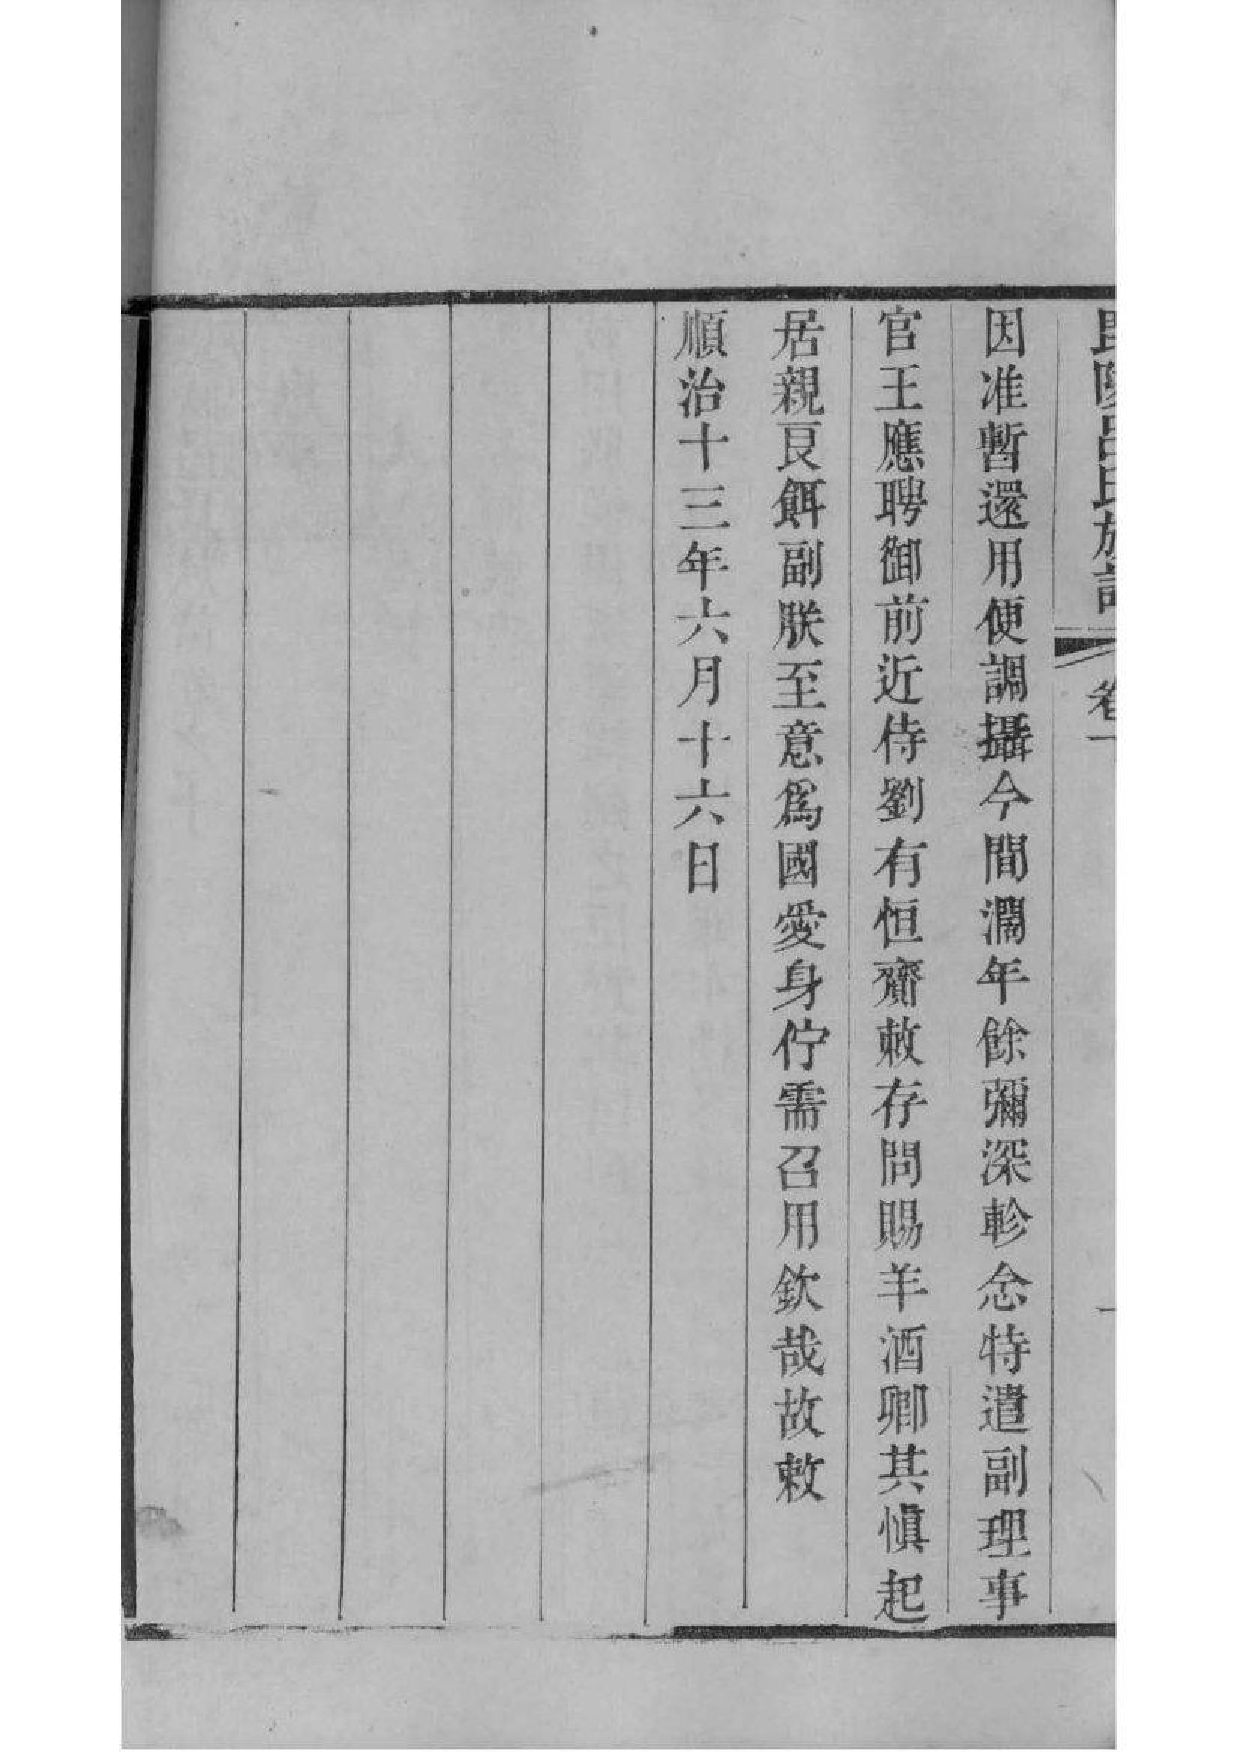 毘陵呂氏族譜 卷一 一
因准暫還用便調攝今間濶年餘彌深軫念特遣副理事
官王應聘御前近侍劉有恒齎敕存問賜羊酒卿其愼起
居親良餌副朕至意爲國愛身佇需召用欽哉故敕
順治十三年六月十六日